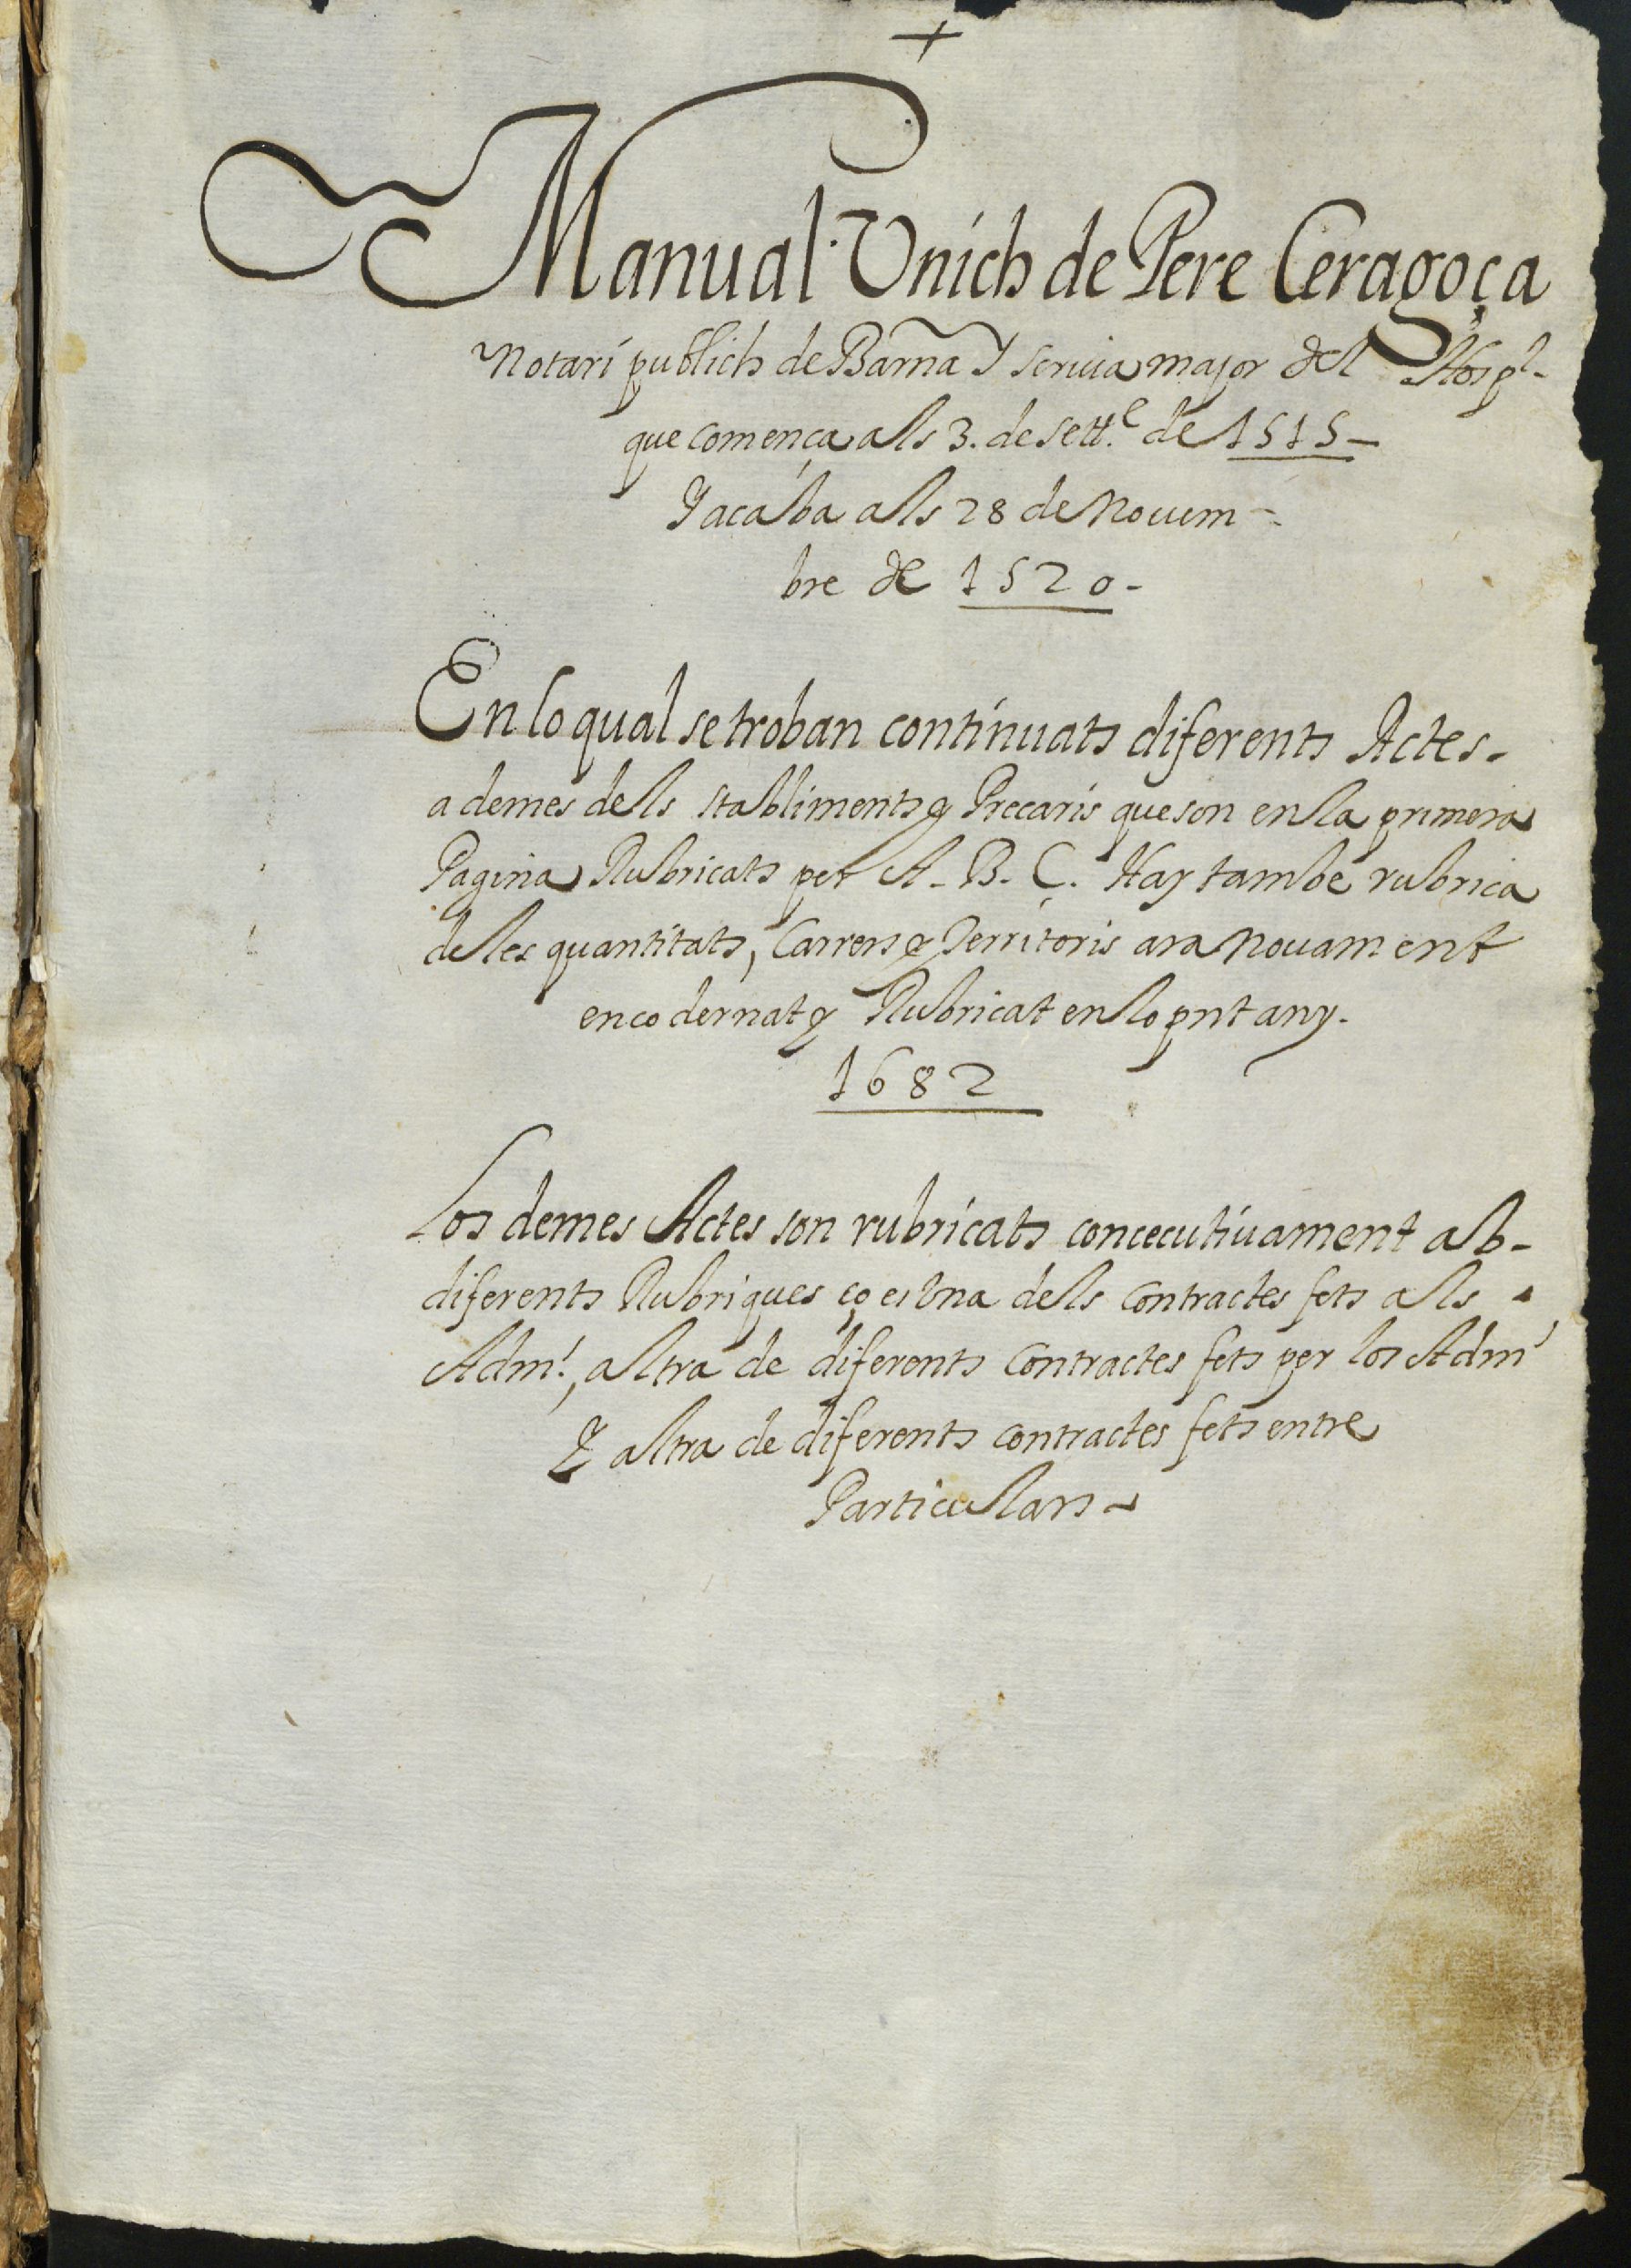 +
Manual Unich de Pere Ceragoça
Notari publich de Barna Y scriua major del Hospl.
que comença als 3. de Sett.e de 1515
Y acaba als 28 de Nouem-
bre de 1520.
En lo qual se troban continuats diferents Actes.
a demes dels stabliments y Precaris que son en la primera
Pagina Rubricats per A. B. C. Hay tambe rubrica
de les quantitats, Carrers y Territoris ara nouament
encodernat y Rubricat en lo pnt any.
1682
Los demes Actes son rubricats concecutiuament ab
diferents Rubriques ço es Una dels contractes fets als
Adm!, altra de diferents contractes fets per los Adm!
Y altra de diferents contractes fets entre
Particulars